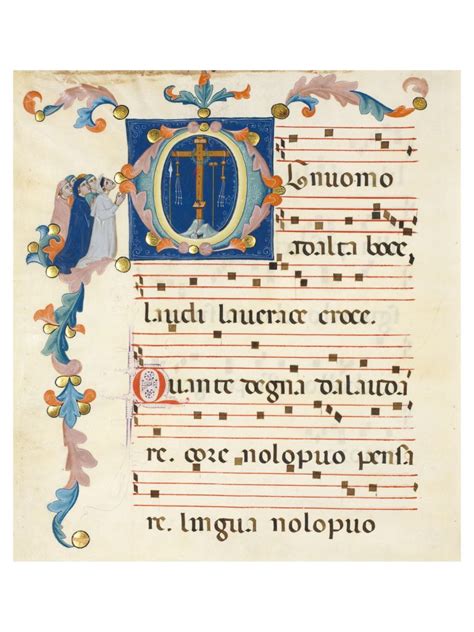 Ognuomo
adalta boce
laudi laverace croce.
Quante degna dalauda
re. core nolopuo pensa
re. lingua nolopuo